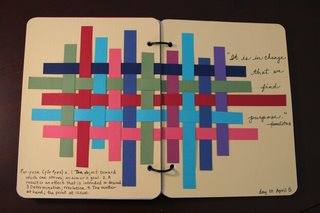 Purpose (pûr'pəs) n. 1. The object toward
which one strives; an aim or a goal. 2. A
result or an effect that is intended or desired
3. Determination; resolution. 4. The matter
at hand; the point at issue.
"It is in change
that we
find
purpose."
-heraclitus
day 19. April 5